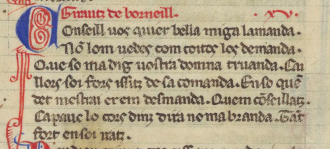 Girautz de borneill. .xv.
Conseill uos quier bella miga lamanda.
Nõ lom uedes com coitos lo demanda.
Q̃ue so ma dig uostra domna truanda. Ca
llors soi fors issitz de sa comanda. Enso que
det mestrai er em desmanda. Quem cõseillatz.
Capauc lo cors dinz dira no ma branda. Tãt
fort en soi iratz.